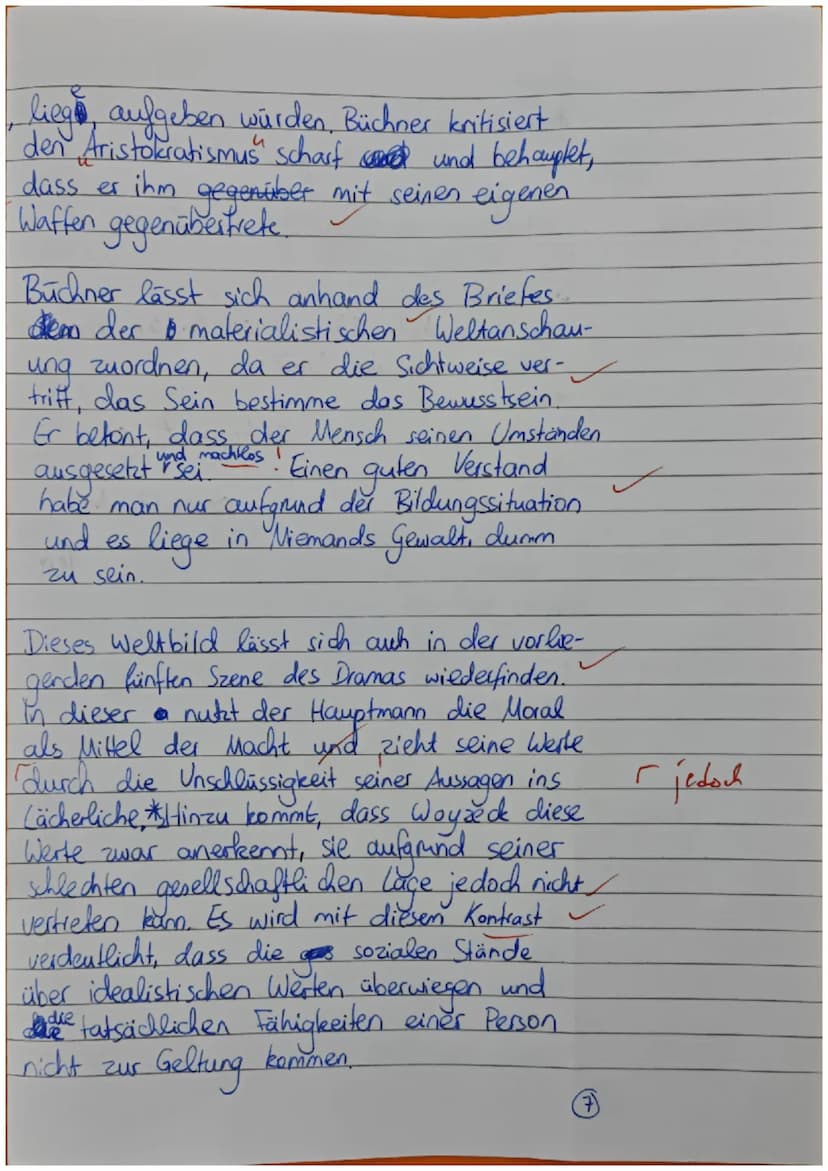 , liege, aufgeben würden. Büchner kritisiert
den "Aristokratismus" scharf und behauptet,
dass er ihm gegenüber mit seinen eigenen
Waffen gegenübertrete.
Büchner lässt sich anhand des Briefes
der materialistischen Weltanschau-
ung zuordnen, da er die Sichtweise ver-
tritt, das Sein bestimme das Bewusstsein.
Er betont, dass der Mensch seinen Umständen
ausgesetzt und machtlos sei. ! Einen guten Verstand
habe man nur aufgrund der Bildungssituation
und es liege in Niemands Gewalt, dumm
zu sein.
Dieses Weltbild lässt sich auch in der vorlie-
genden fünften Szene des Dramas wiederfinden.
In dieser nutzt der Hauptmann die Moral
als Mittel der Macht und zieht seine Werte
durch die Unschlüssigkeit seiner Aussagen ins jedoch
Lächerliche.* Hinzu kommt, dass Woyzeck diese
Werte zwar anerkennt, sie aufgrund seiner
schlechten gesellschaftlichen Lage jedoch nicht
vertreten kann. Es wird mit diesem Kontrast
verdeutlicht, dass die sozialen Stände
über idealistischen Werten überwiegen und
die tatsächlichen Fähigkeiten einer Person
nicht zur Geltung kommen.
7